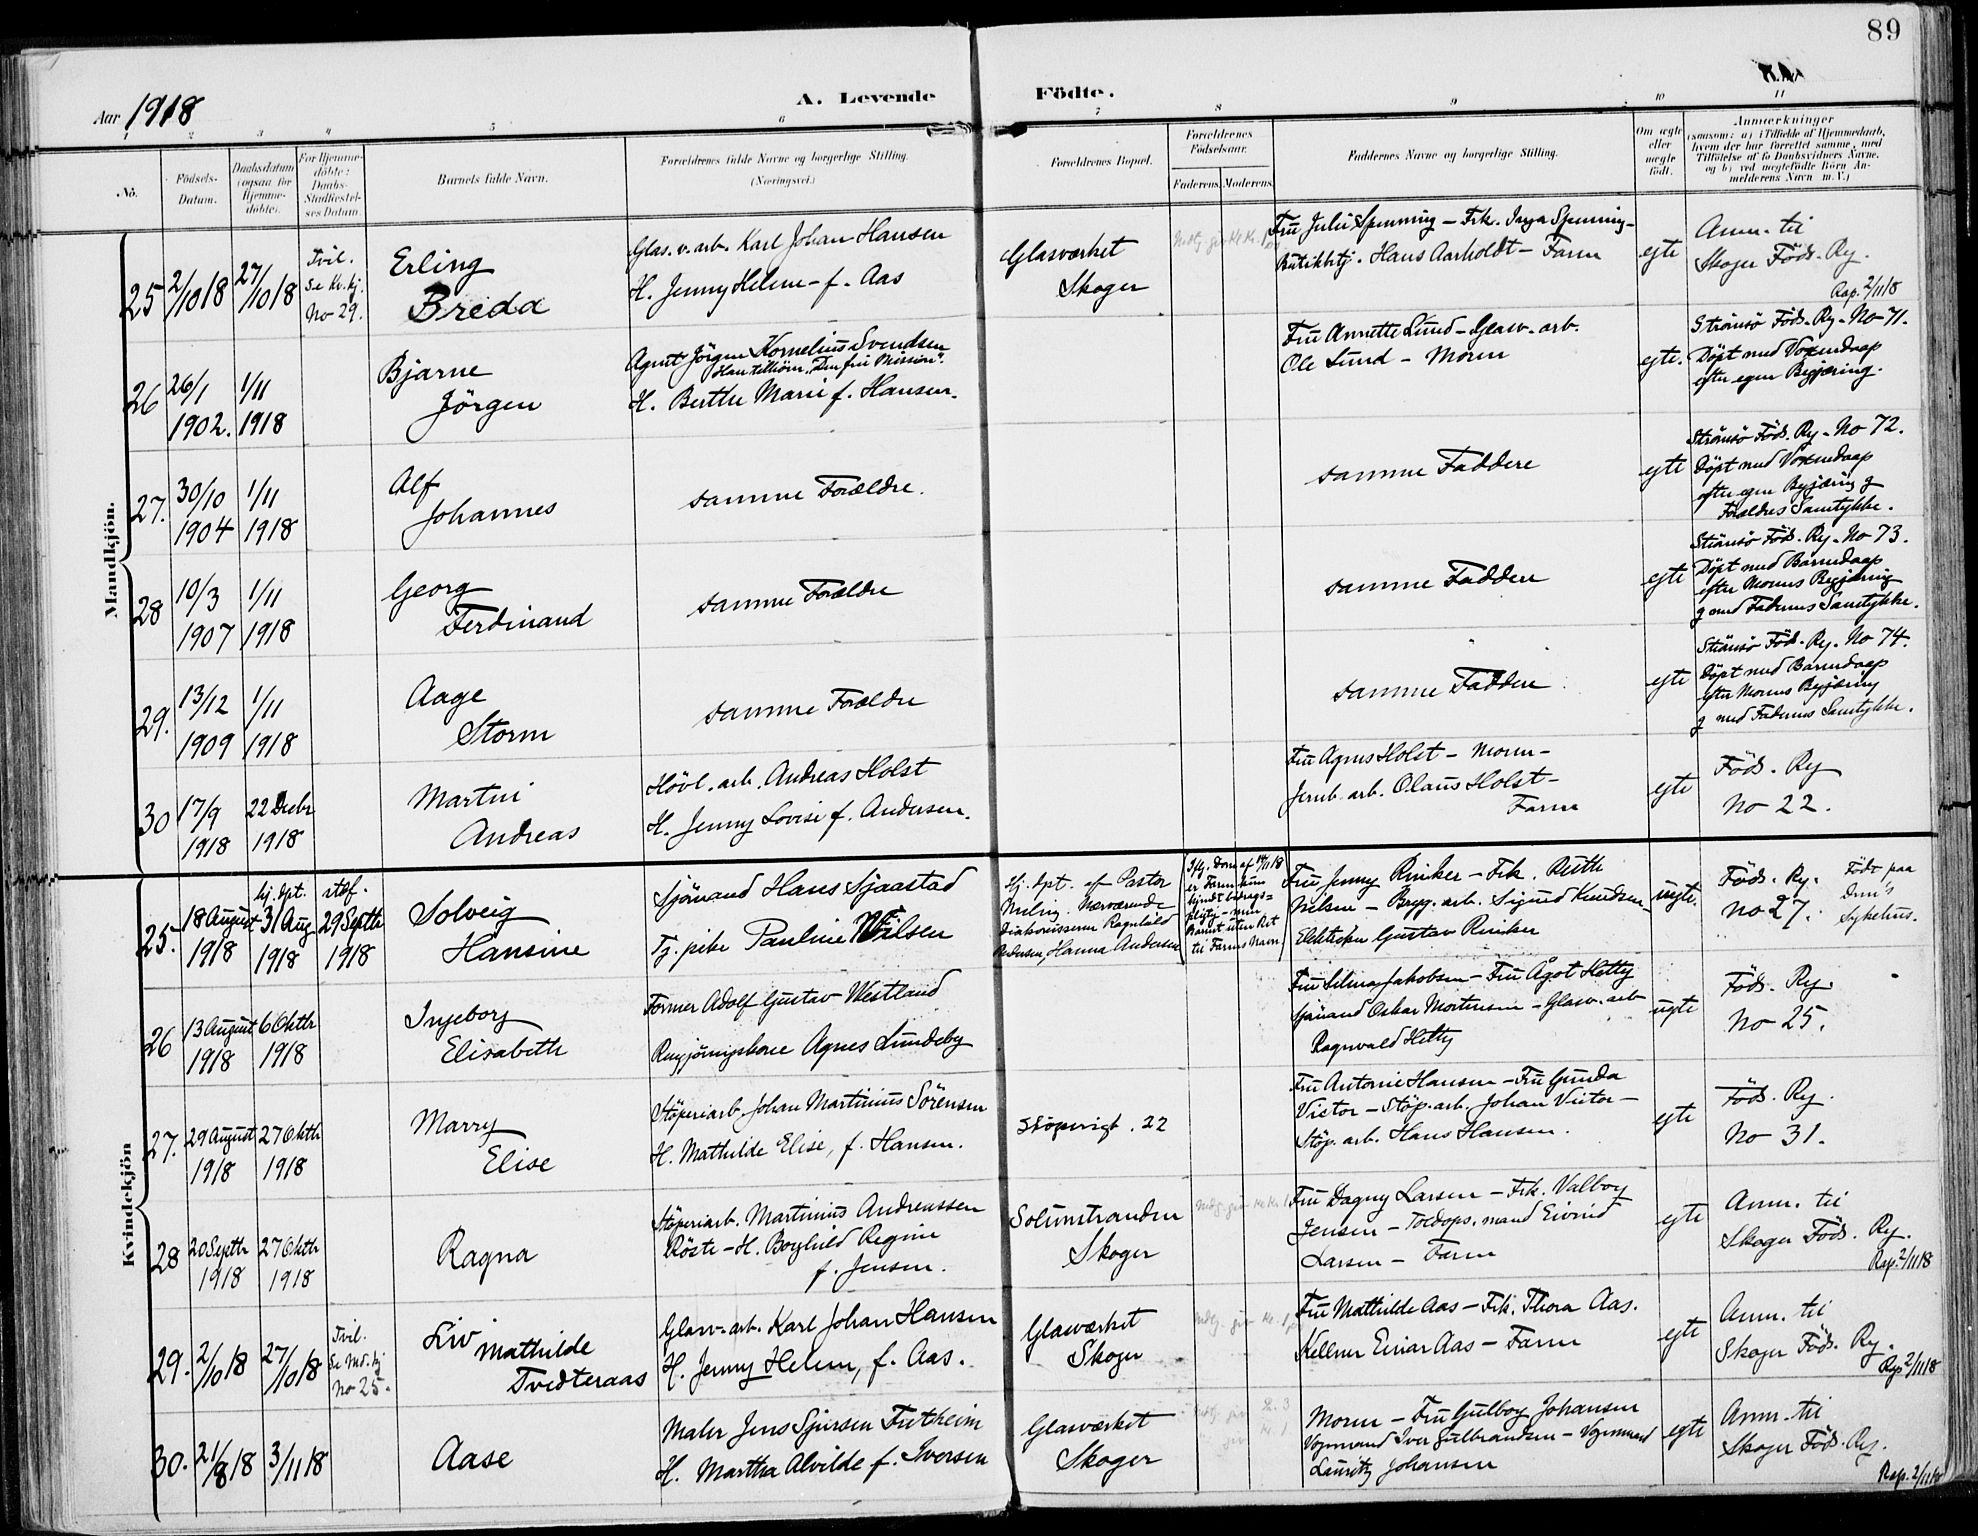 89
Aar 1918
A. Levende Födte.
1 2 3 4 5 6 7 8 9 10 11
No.
Födsels-Datum.
Daabsdatum (ogsaa for Hjemmedöbte).
For Hjemmedöbte: Daabs-Stadfæstelses Datum.
Barnets fulde Navn.
Forældrenes fulde Navne og borgerlige Stilling.
(Næringsvei.)
Forældrenes Bopæl.
Forældrenes Födselsaar.
Faderens. Moderens.
Faddernes Navne og borgerlige Stilling.
Om ægte eller uægte födt.
Anmærkninger
(saasom: a) i Tilfælde af Hjemmedaab, hvem der har forrettet samme, med Tilföielse af to Daabsvidners Navne, og b) ved uægtefödte Börn Anmelderens Navn m. V.)
Mandkjön.
25 2/10 18 27/10 18 Tvil. Se Kv.kj. No 29.
Erling
Breda
Glas.v.arb. Karl Johan Hansen
H. Jenny Helene f. Aas
Glasværket
Skoger
Fru Julie Spenning - Frk. Inga Spenning -
Butikbetj. Hans Aarholdt - Faren
egte
Anm. til
Skoger Föds. Rg.
Rap. 2/11 18
26 26/1 1902. 1/11 1918
Bjarne
Jörgen
Agent Jörgen Kornelius Svendsen
Han tilhörer "Den frie Mission".
H. Berthe Marie f. Hansen.
Fru Annette Lund - Glasv. arb.
Ole Lund - Moren
egte.
Strömsö Föds. Rg. No 71.
Döpt med Voxendaap
efter egen Begjæring.
27. 30/10 1904 1/11 1918
Alf
Johannes
samme Forældre.
samme Faddere
egte
Strömsö Föds. Rg. No 72.
Döpt med Voxendaap
efter egen Begjæring og
Forældres Samtykke.
28 10/3 1907 1/11 1918
Georg
Ferdinand
samme Forældre
samme Faddere
egte
Strömsö Föds. Rg. No 73.
Döpt med Barnedaap
efter Morens Begjæring
og med Faderens Samtykke.
29. 13/12 1909 1/11 1918
Aage
Storm
samme Forældre
samme Faddere
egte
Strömsö Föds. Rg. No 74.
Döpt med Barnedaap
efter Morens Begjæring
og med Faderens Samtykke.
30 17/9 1918 22 Decbr 1918
Martin
Andreas
Hövl. arb. Andreas Holst
H. Jenny Lovise f. Andersen.
Fru Agnes Holst - Moren -
Jernb. arb. Olaus Holst -
Faren
egte
Föds. Rg
No 22.
Kvindekjön
25. 18 August 1918 hj. dpt. 31 Aug 1918 stdf. 29 Septbr 1918
Solveig
Hansine
Sjömand Hans Sjaastad
Tj. pike Pauline Nilsen
Hj. dpt. af Pastor
Nærværende
Diakonisserne Ragnhild
Andersen, Hanna Andersen
Ifg. Dom af 14/11 18
er Faren kun
kjendt bidrags-
pligtig - men
Barnet uten Ret
til Farens Navn
Fru Jenny Riniker - Frk. Ruth
Nilsen - Bryg. arb. Sigurd Knudsen
Elektriker Gustav Riniker
uegte.
Föds. Rg.
No 27.
Födt paa
Drm's
Sykehus.
26 13 August 1918 6 Oktbr 1918
Ingeborg
Elisabeth
Former Adolf Gustav Westland
Rengjöringskone Agnes Lundeby
Fru Silma Jakobsen - Fru Ågot Hetty
Sjömand Oskar Mortensen - Glasv. arb
Ragnvald Hetty
uegte
Föds. Rg.
No 25.
27. 29 August 1918 27 Oktbr 1918
Marry
Elise
Stöperiarb. Johan Martinius Sörensen
H. Mathilde Elise, f. Hansen.
Stöperigt. 22
Fru Antonie Hansen - Fru Gunda
Victor - Stöp. arb. Johan Victor -
Stöp. arb. Hans Hansen.
egte
Föds. Rg.
No 31.
28 20 Septbr 1918 27 Oktbr 1918
Ragna
Stöperiarb. Martinius Andreassen
Röste - H. Borghild Regine
f. Jensen.
Solumstranden
Skoger
Fru Dagny Larsen - Frk. Valborg
Jensen - Toldops. mand Eivind
Larsen - Faren
egte
Anm. til
Skoger Föds. Rg.
Rap. 2/11 18
29. 2/10 18 27/10 18 Tvil. Se Md. kj No 25.
Liv Mathilde
Tvedteraas
Glasv. arb. Karl Johan Hansen
H. Jenny Helene, f. Aas.
Glasværket
Skoger
Fru Mathilde Aas - Frk. Thora Aas.
Kellner Einar Aas - Faren
egte
Anm. til
Skoger Föds. Rg.
Rap 2/11 18
30. 21/8 18 3/11 18
Aase
Maler Jens Sjursen Futheim
H. Martha Alvilde f. Iversen
Glasværket
Skoger
Moren - Fru Gulborg Johansen
Vognmand Iver Gulbrandsen - Vognmand
Lauritz Johansen
egte
Anm. til
Skoger Föds. Rg.
Rap. 2/11 18